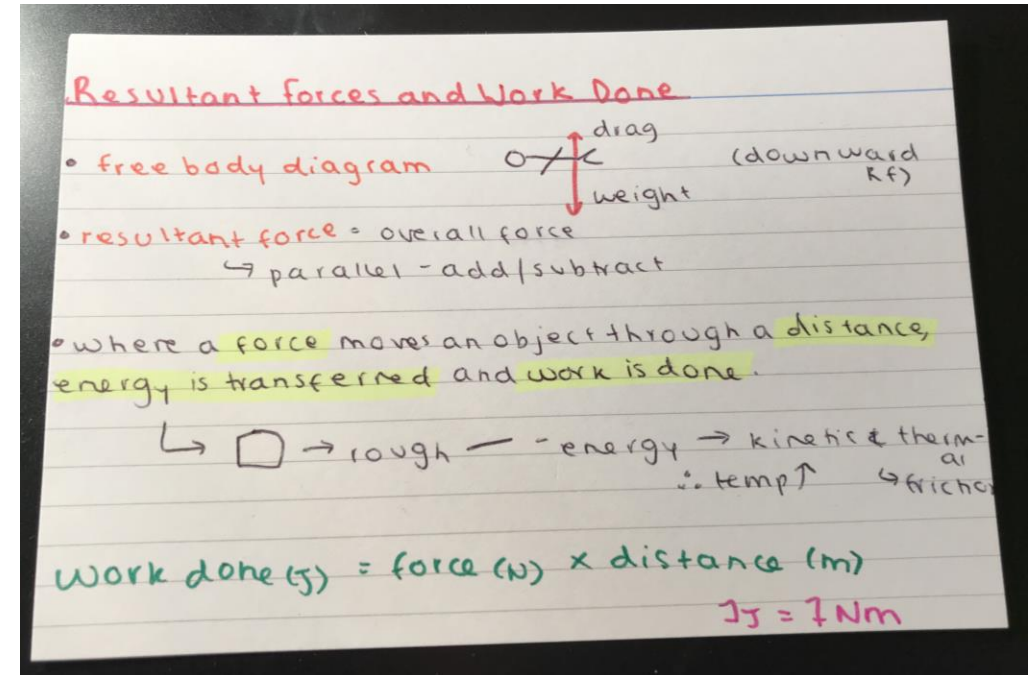 Resultant forces and Work Done
drag
• free body diagram
(downward
RF)
weight
• resultant force = overall force
↳ parallel - add/subtract
• where a force moves an object through a distance,
energy is transferred and work is done.
↳ → rough — - energy → kinetic & therm-
al
∴ temp↑ ↳ friction
work done (J) = force (N) × distance (m)
1J = 1Nm